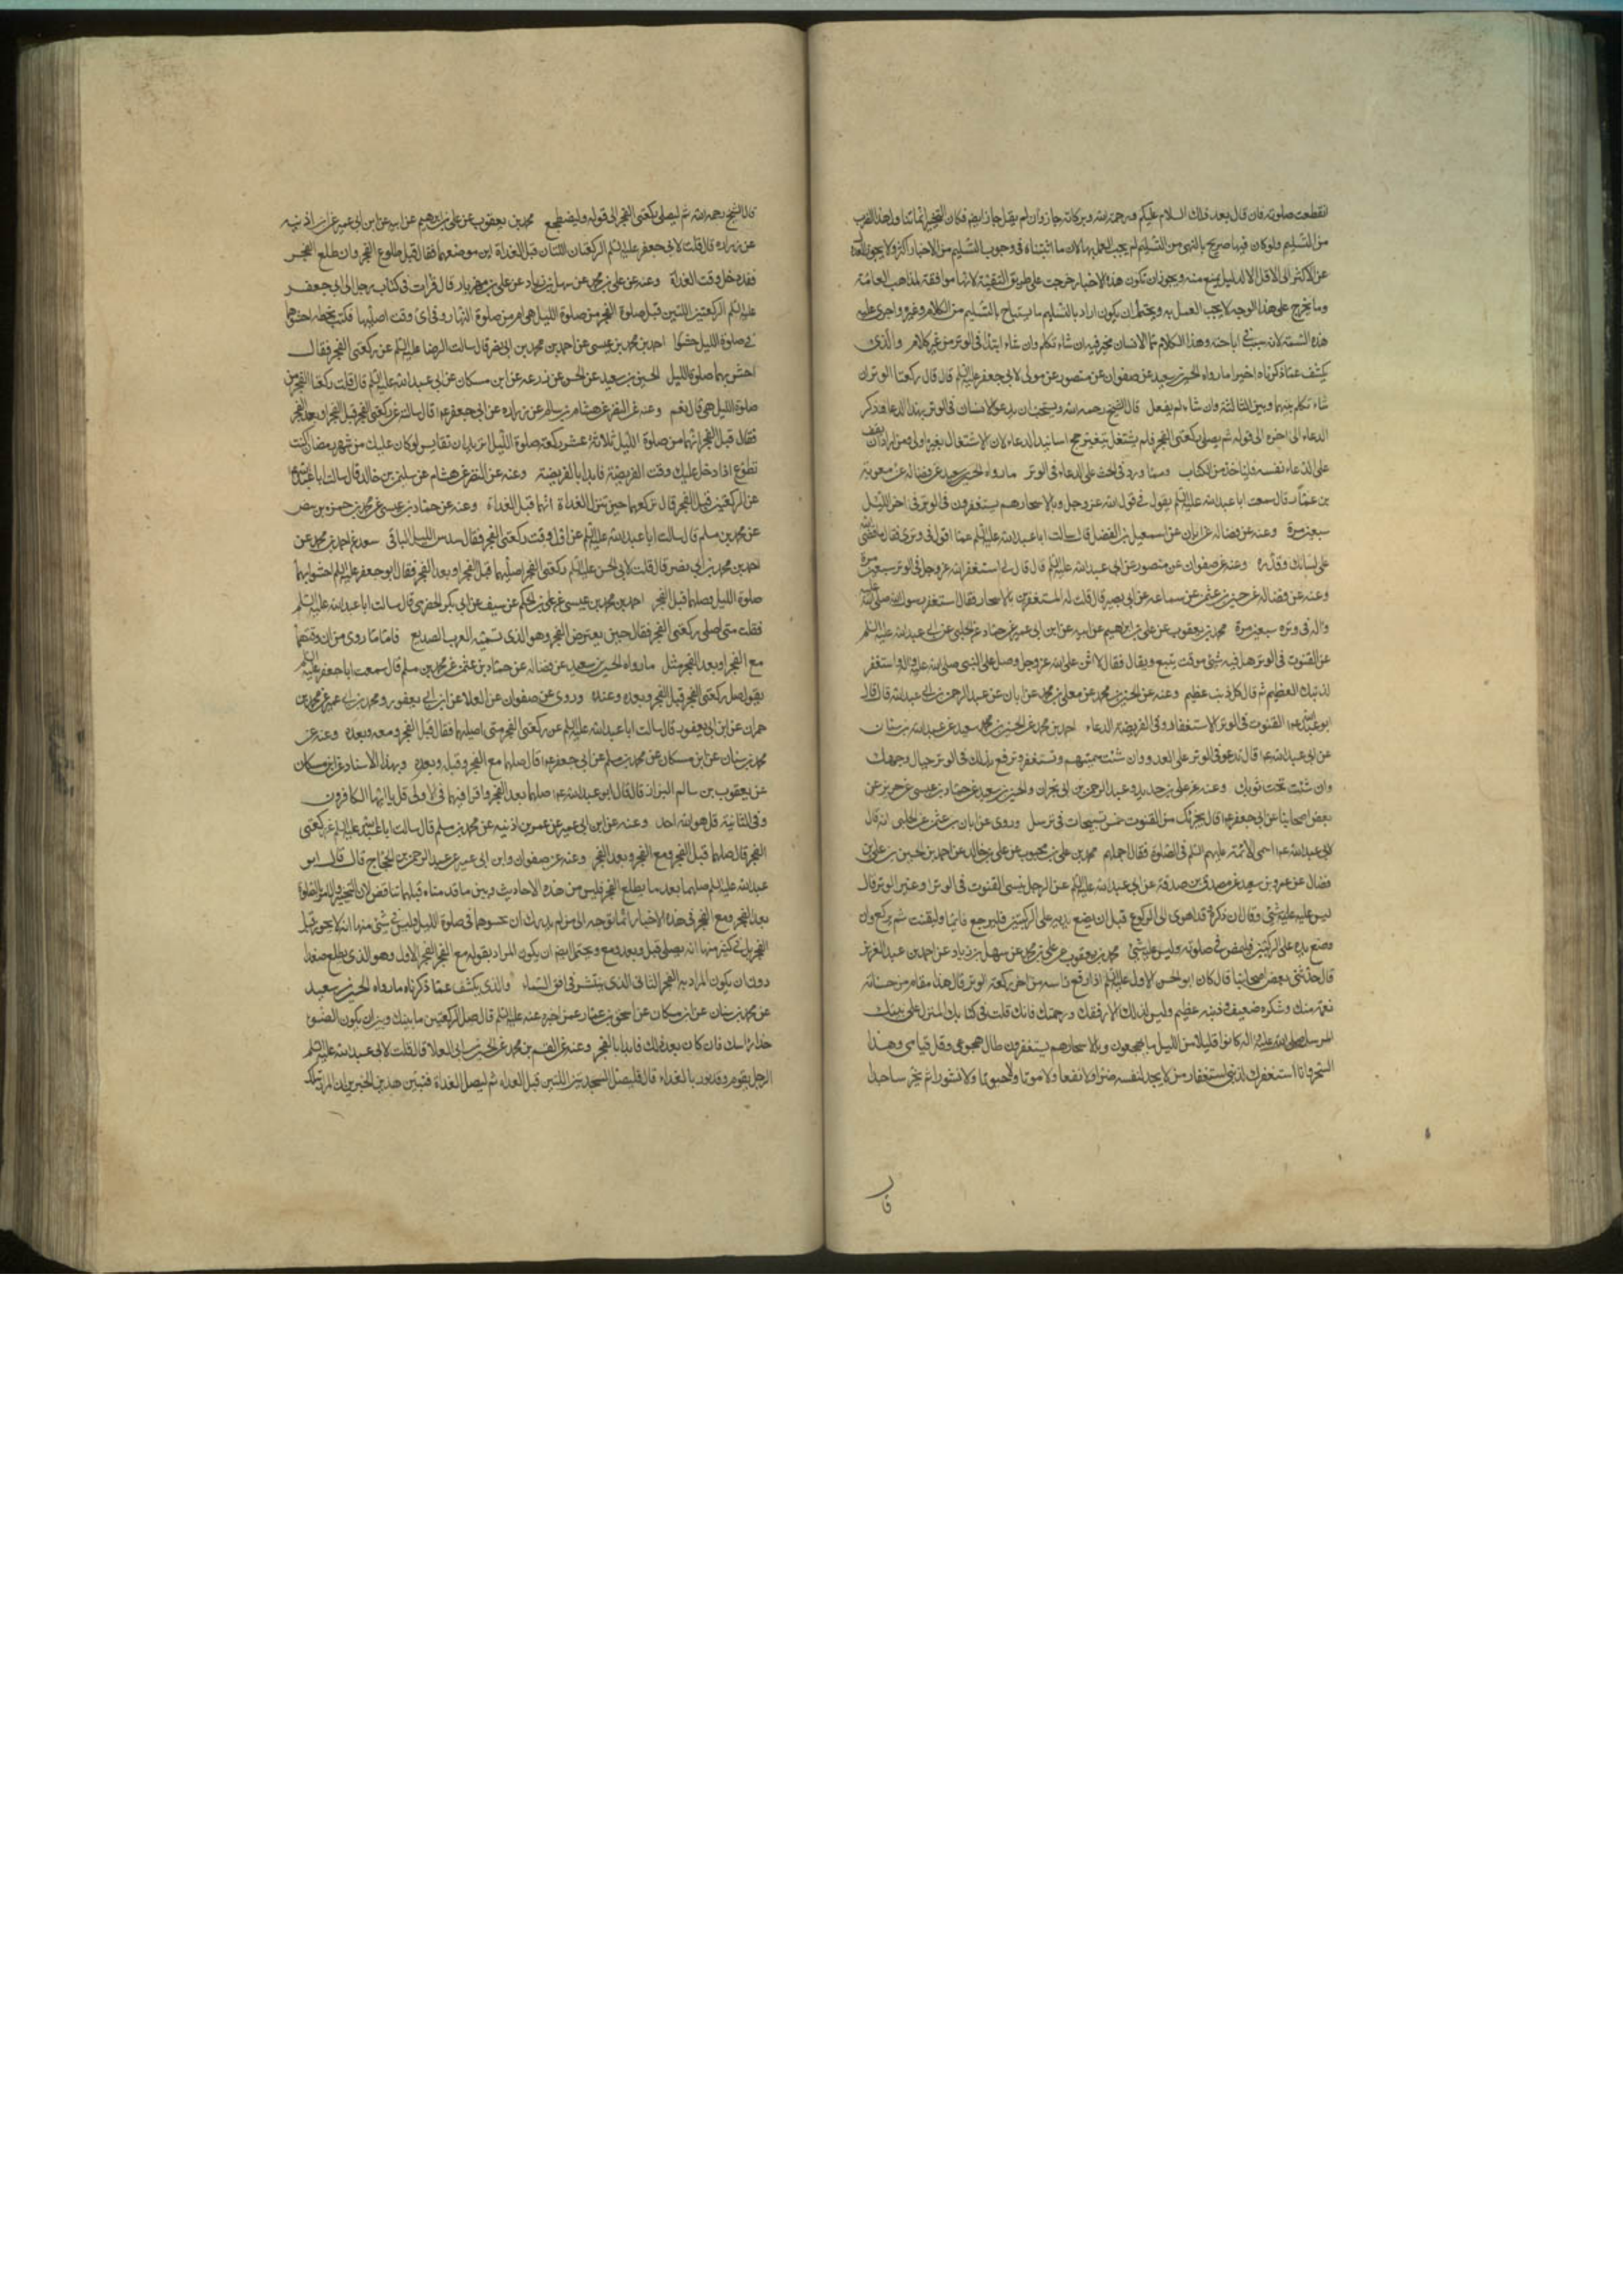 انقطعت صلوته فان قال بعد ذلك السلام عليكم ورحمة الله وبركاته جاز وان لم يقل جاز ايضا فكان التخيير انما تناول هذا الضرب
من التسليم ولو كان فيها صريح بالنهي من التسليم لم يجب العمل بها لان ما اثبتناه في وجوب التسليم من الاخبار اكثر ولا يجوز العدول
عن الاكثر الى الاقل الا لدليل يمنع منه ويجوز ان تكون هذه الاخبار خرجت على طريق التقية لانها موافقة لمذاهب العامة
وما يخرج على هذا الوجه لا يجب العمل به ويحتمل ان يكون اراد بالتسليم ما يستباح بالتسليم من الكلام وغيره واجرى عليه
هذه التسمية لانه سبب في اباحته وهذا الكلام مما الانسان مخير فيه ان شاء تكلم وان شاء ابتدا في الوتر من غير كلام والذي
يكشف عما ذكرناه اخيرا ما رواه الحسين بن سعيد عن صفوان عن منصور عن مولى لابي جعفر عليه السلم قال قال ركعتا الوتر ان
شاء تكلم بينهما وبين الثالثة وان شاء لم يفعل قال الشيخ رحمه الله ويستحب ان يدعو الانسان في الوتر بهذا الدعاء فذكر
الدعاء الى اخره الى قوله ثم يصلي ركعتي الفجر فلم نشتغل بتخريج اسانيد الدعاء لان الاشتغال بغيره اولى فمن اراد ان يقف
على الدعاء نفسه فلياخذ من الكتاب ومما ورد في الحث على الدعاء في الوتر ما رواه الحسين بن سعيد عن فضالة عن معوية
بن عمار قال سمعت ابا عبد الله عليه السلم يقول في قول الله عز وجل وبالاسحار هم يستغفرون في الوتر في اخر الليل
سبعين مرة وعنه عن فضالة عن ابان عن اسمعيل بن الفضل قال سالت ابا عبد الله عليه السلم عما اقول في وتري فقال ما قضى الله
على لسانك وقدره وعنه عن صفوان عن منصور عن ابي عبد الله عليه السلم قال قال لي استغفر الله عز وجل في الوتر سبعين مرة
وعنه عن فضالة عن حسين بن عثمن عن سماعة عن ابي بصير قال قلت له المستغفرين بالاسحار فقال استغفر رسول الله صلى الله عليه
واله في وتره سبعين مرة محمد بن يعقوب عن علي بن ابراهيم عن ابيه عن ابن ابي عمير عن حماد عن الحلبي عن ابي عبد الله عليه السلم
عن القنوت في الوتر هل فيه شئ موقت يتبع ويقال فقال لا اثن على الله عز وجل وصل على النبي صلى الله عليه واله واستغفر
لذنبك العظيم ثم قال كل ذنب عظيم وعنه عن الحسين بن محمد عن معلى بن محمد عن ابان عن عبد الرحمن بن ابي عبد الله قال قال
ابو عبد الله ع القنوت في الوتر الاستغفار وفي الفريضة الدعاء احمد بن محمد عن الحسين بن سعيد عن عبد الله بن سنان
عن ابي عبد الله ع قال تدعو في الوتر على العدو وان شئت سميتهم وتستغفر وترفع يديك في الوتر حيال وجهك
وان شئت تحت ثوبك وعنه عن علي بن حديد وعبد الرحمن بن ابي نجران والحسين بن سعيد عن حماد بن عيسى عن حريز عن
بعض اصحابنا عن ابي جعفر ع قال يجزئك من القنوت خمس تسبيحات في ترسل وروى عن ابان بن عثمن عن الحلبي انه قال
لابي عبد الله ع اسمي الائمة عليهم السلم في الصلوة فقال اجملهم محمد بن علي بن محبوب عن علي بن خالد عن احمد بن الحسن بن علي بن
فضال عن عمرو بن سعيد عن مصدق بن صدقة عن ابي عبد الله عليه السلم عن الرجل ينسى القنوت في الوتر او غير الوتر قال
ليس عليه شئ وقال ان ذكره وقد اهوى الى الركوع قبل ان يضع يديه على الركبتين فليرجع قائما وليقنت ثم يركع وان
وضع يده على الركبتين فليمض في صلوته وليس عليه شئ محمد بن يعقوب عن علي بن محمد عن سهل بن زياد عن احمد بن عبد العزيز
قال حدثني بعض اصحابنا قال كان ابو الحسن الاول عليه السلم اذا رفع راسه من اخر ركعة الوتر قال هذا مقام من حسناته
نعمة منك وشكره ضعيف وذنبه عظيم وليس لذلك الا رفقك ورحمتك فانك قلت في كتابك المنزل على نبيك
المرسل صلى الله عليه واله كانوا قليلا من الليل ما يهجعون وبالاسحار هم يستغفرون طال هجوعي وقل قيامي وهذا
السحر وانا استغفرك لذنبي استغفار من لا يجد لنفسه ضرا ولا نفعا ولا موتا ولا حيوة ولا نشورا ثم يخر ساجدا
قال
قال الشيخ رحمه الله ثم ليصلي ركعتي الفجر الى قوله وليضطجع محمد بن يعقوب عن علي بن ابراهيم عن ابيه عن ابن ابي عمير عن ابن اذينة
عن زرارة قال قلت لابي جعفر عليه السلم الركعتان اللتان قبل الغداة اين موضعهما فقال قبل طلوع الفجر وان طلع الفجر
فقد دخل وقت الغداة وعنه عن علي بن محمد عن سهل بن زياد عن علي بن مهزيار قال قرات في كتاب رجل الى ابي جعفر
عليه السلم الركعتين اللتين قبل صلوة الفجر من صلوة الليل هي ام من صلوة النهار وفي اي وقت اصليها فكتب بخطه احشهما
في صلوة الليل حشوا احمد بن محمد بن عيسى عن احمد بن محمد بن ابي نصر قال سالت الرضا عليه السلم عن ركعتي الفجر فقال
احشو بهما صلوة الليل الحسين بن سعيد عن الحسن عن زرعة عن ابن مسكان عن ابي عبد الله عليه السلم قال قلت ركعتا الفجر من
صلوة الليل هي قال نعم وعنه عن النضر عن هشام بن سالم عن زرارة عن ابي جعفر ع قال سالته عن ركعتي الفجر قبل الفجر او بعد الفجر
فقال قبل الفجر انهما من صلوة الليل ثلاثة عشر ركعة صلوة الليل اتريد ان تقايس لو كان عليك من شهر رمضان اكنت
تطوع اذا دخل عليك وقت الفريضة فابدا بالفريضة وعنه عن النضر عن هشام عن سليمن بن خالد قال سالت ابا عبد الله ع
عن الركعتين قبل الفجر قال تركعهما حين تنزل الغداة انهما قبل الغداة وعنه عن حماد بن عيسى عن محمد بن حمزة بن بيض
عن محمد بن مسلم قال سالت ابا عبد الله عليه السلم عن اول وقت ركعتي الفجر فقال سدس الليل الباقي سعد عن احمد بن محمد عن
احمد بن محمد بن ابي نصر قال قلت لابي الحسن عليه السلم ركعتي الفجر اصليهما قبل الفجر او بعد الفجر فقال ابو جعفر عليه السلم احشوا بهما
صلوة الليل وصلهما قبل الفجر احمد بن محمد بن عيسى عن علي بن الحكم عن سيف عن ابي بكر الحضرمي قال سالت ابا عبد الله عليه السلم
فقلت متى اصلي ركعتي الفجر فقال حين يعترض الفجر وهو الذي تسميه العرب الصديع فاما ما روي من ان وقتهما
مع الفجر او بعد الفجر مثل ما رواه الحسين بن سعيد عن فضالة عن حماد بن عثمن عن محمد بن مسلم قال سمعت ابا جعفر عليه السلم
يقول صل ركعتي الفجر قبل الفجر وبعده وعنده وروى عن صفوان عن العلا عن ابن ابي يعفور ومحمد بن ابي عمير عن محمد بن
حمران عن ابن ابي يعفور قال سالت ابا عبد الله عليه السلم عن ركعتي الفجر متى اصليهما فقال قبل الفجر ومعه وبعده وعنه عن
محمد بن سنان عن ابن مسكان عن محمد بن مسلم عن ابي جعفر ع قال صلهما مع الفجر وقبله وبعده وبهذا الاسناد عن ابن مسكان
عن يعقوب بن سالم البزاز قال قال ابو عبد الله ع صلهما بعد الفجر واقرا فيهما في الاولى قل يا ايها الكافرون
وفي الثانية قل هو الله احد وعنه عن ابن ابي عمير عن عمر بن اذينة عن محمد بن مسلم قال سالت ابا عبد الله عليه السلم عن ركعتي
الفجر قال صلهما قبل الفجر ومع الفجر وبعد الفجر وعنه عن صفوان وابن ابي عمير عن عبد الرحمن بن الحجاج قال قال ابو
عبد الله عليه السلم صلهما بعد ما يطلع الفجر فليس من هذه الاحاديث وبين ما قدمناه قبلهما تناقض لان التخيير والامر بالصلوة
بعد الفجر ومع الفجر في هذه الاخبار انما توجه الى من لم يدرك ان يحشوهما في صلوة الليل وليس في شئ منها انه لا يجوز قبل
الفجر بل في كثير منها انه يصلي قبل وبعد ومع ويحتمل ايضا ان يكون المراد بقوله مع الفجر الفجر الاول وهو الذي يطلع صعدا
دون ان يكون المراد به الفجر الثاني الذي ينتشر في افق السماء والذي يكشف عما ذكرناه ما رواه الحسين بن سعيد
عن محمد بن سنان عن ابن مسكان عن اسحق بن عمار عمن اخبره عنه عليه السلم قال صل الركعتين ما بينك وبين ان يكون الضوء
حذا راسك فان كان بعد ذلك فابدا بالفجر وعنه عن القسم بن محمد عن الحسين بن ابي العلا قال قلت لابي عبد الله عليه السلم
الرجل يقوم وقد نور بالغداة قال فليصل السجدتين اللتين قبل الغداة ثم ليصل الغداة فتبين هذين الخبرين ان المراد بتلك